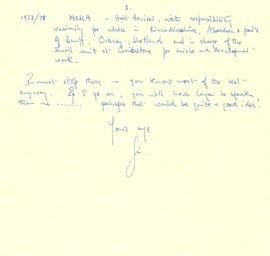 3.
1973/78 NOSCA – Hort. Adviser, with responsibility
variously for advice in Kincardineshire, Aberdeen & parts
of Banff, Orkney, Shetland and in charge of the
small unit at Craibstone for trials and development
work.
I must stop then – you know most of the rest
anyway. If I go on, you will have longer to speak
than me ........ perhaps that would be quite a good idea!
Yours aye